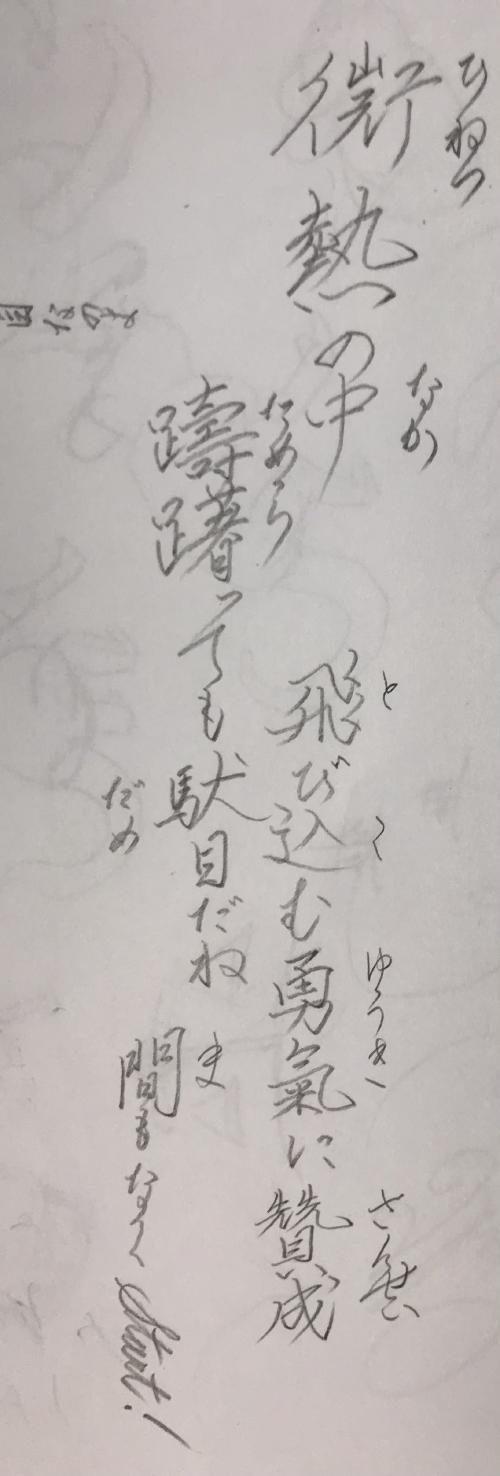 ひねつ
微熱の中
なか
ためら
躊躇っても駄目だね
だめ
と
飛び込む勇氣に贊成
ゆうき
さんせい
ま
間もなくStart!